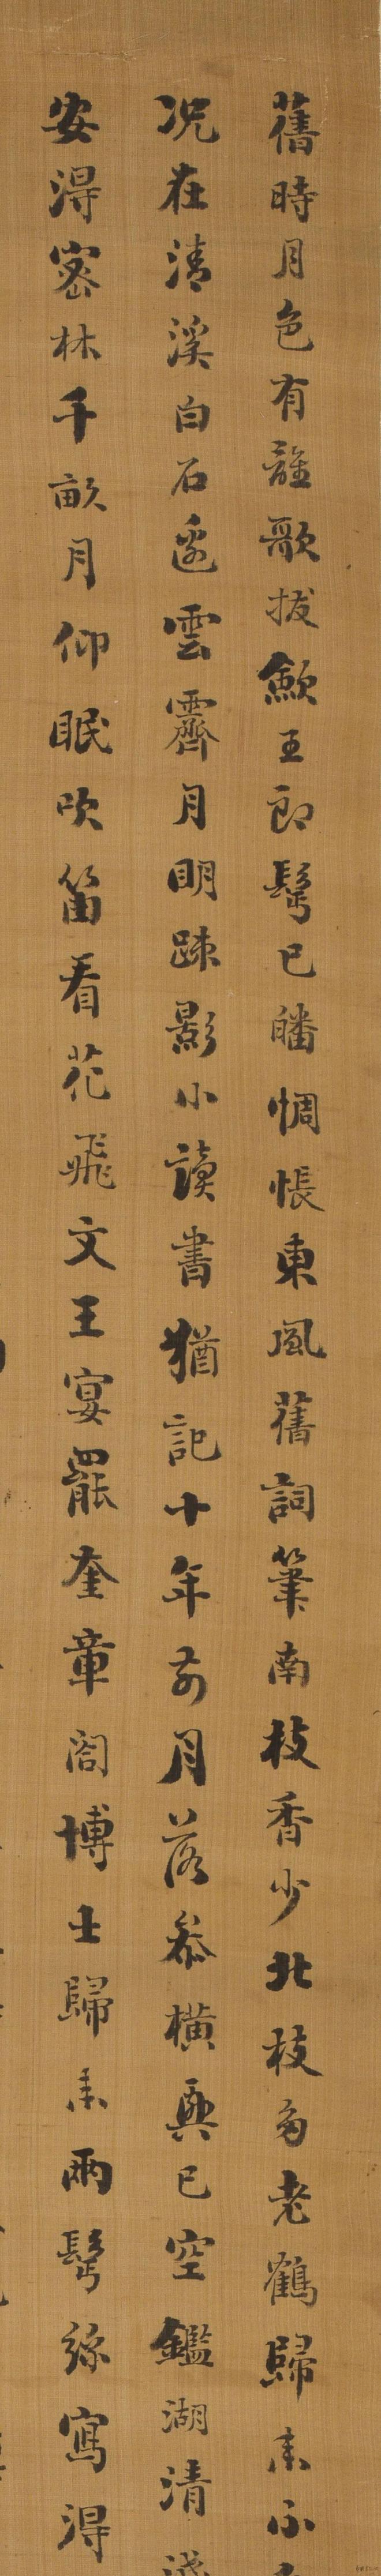 舊時月色有誰歌拔鰥王郎鬂已皤惆悵東風舊詞筆南枝香少北枝多老鶴歸来不
況在清溪白石邊雲霽月明疎影小讀書猶記十年前月落参橫興已空鑑湖清淺
安得密林千畝月仰眠吹笛看花飛文王宴罷奎章閣博士歸来兩鬂絲寫得